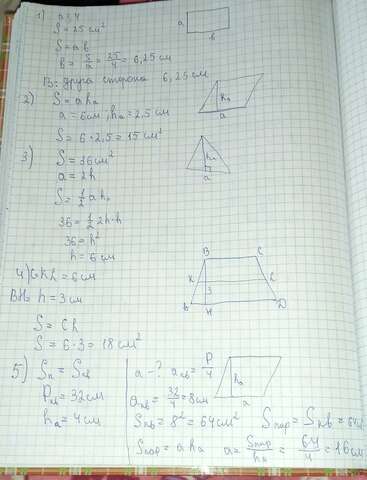 1) a = 4
S = 25 см²
S = a b
b = S/a = 25/4 = 6,25 см
В: друга сторона 6,25 см
a
b
2) S = a hₐ
a = 6 см; hₐ = 2,5 см
S = 6 · 2,5 = 15 см²
hₐ
a
3) S = 36 см²
a = 2h
S = 1/2 a hₐ
36 = 1/2 2h·h
36 = h²
h = 6 см
hₐ
a
4) KL = 6 см
BH = h = 3 см
S = C h
S = 6 · 3 = 18 см²
B C
K L
3
H D
5) Sп = Sкв
Pкв = 32 см
hₐ = 4 см
a - ? aкв = P/4
aкв = 32/4 = 8 см
Sкв = 8² = 64 см²
Sпар = a hₐ
hₐ
a
Sпар = Sкв = 64
a = Sпар/hₐ = 64/4 = 16 см